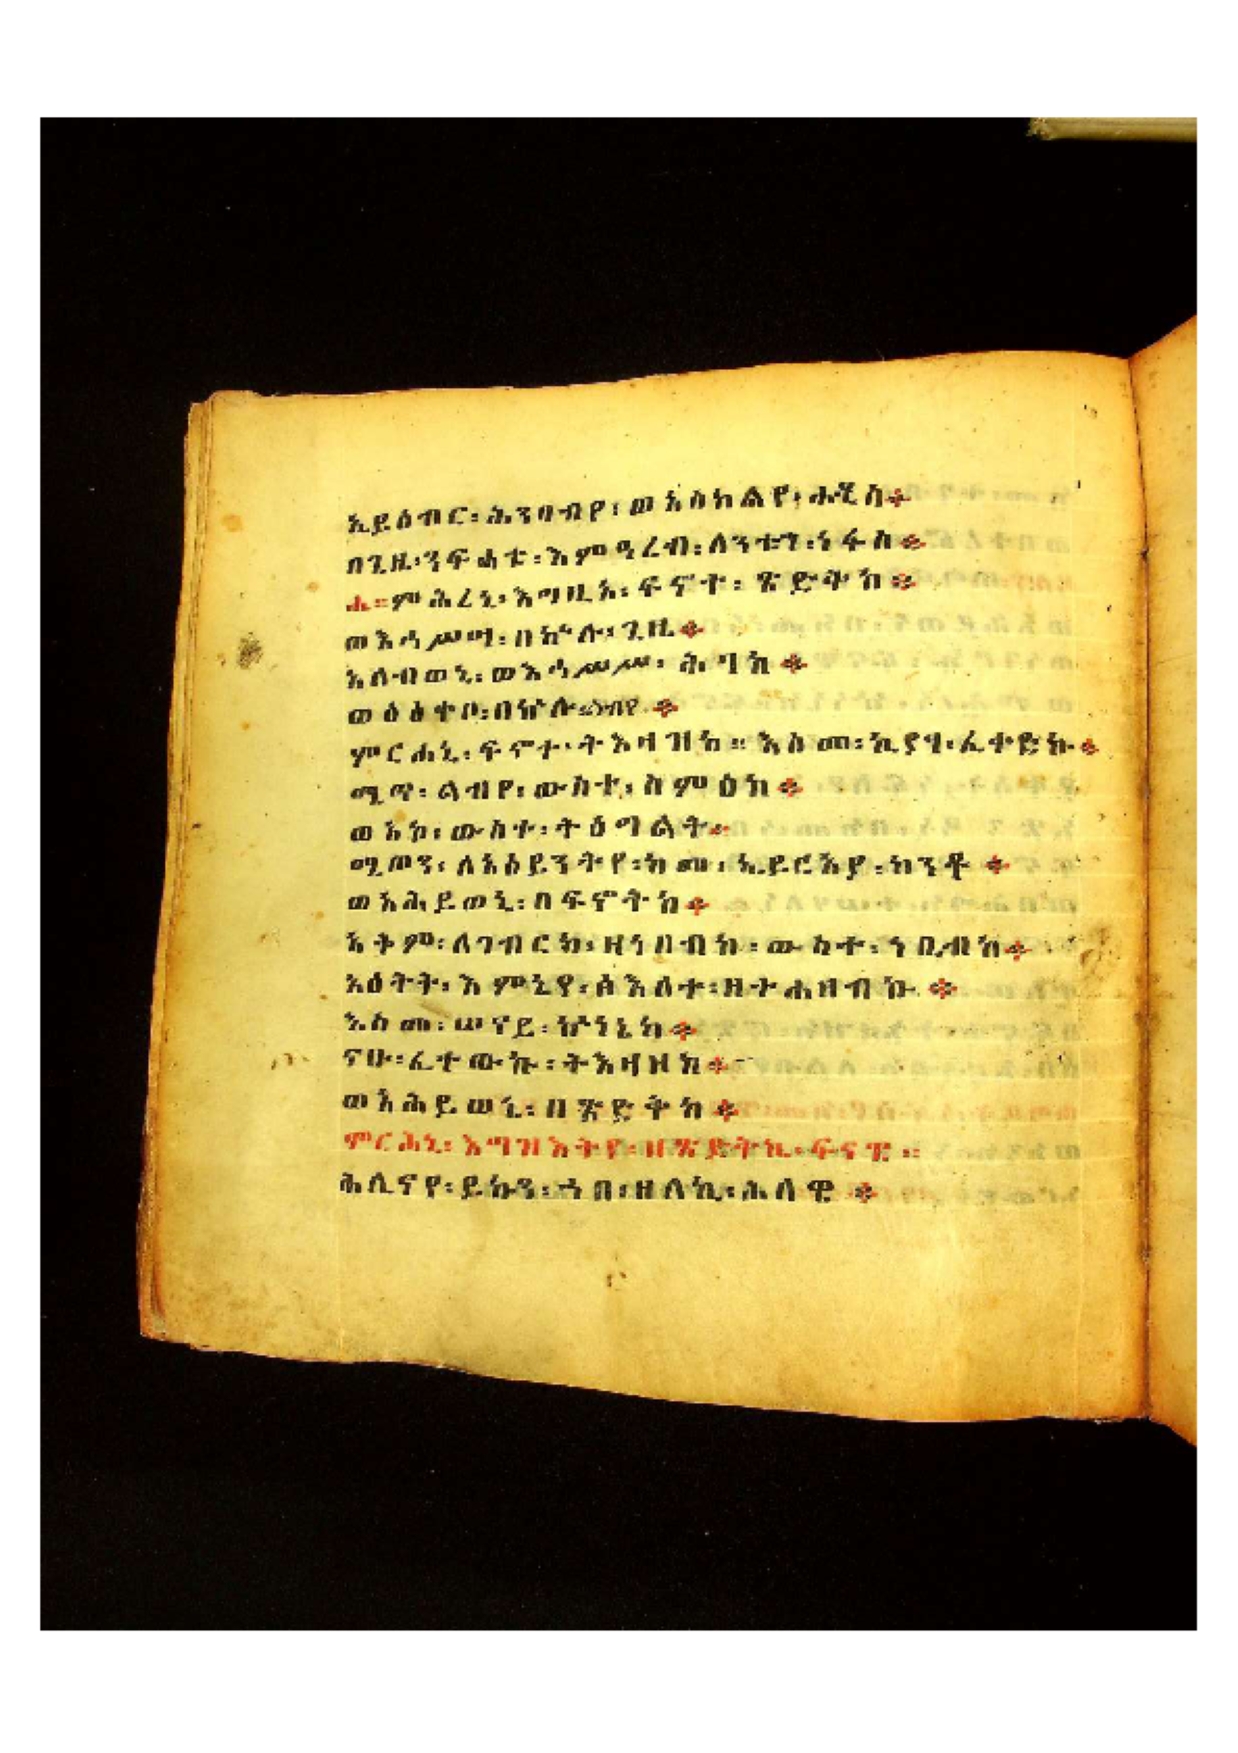 ኢይዕብር፡ ሕንባብየ፡ ወአስከልየ፡ ሐሺስ።
በጊዜ፡ ንፍሐቱ፡ እምዓረብ፡ ለንቱግ፡ ነፋስ።
ሐ። ምሕረኒ፡ እግዚአ፡ ፍኖተ፡ ጽድቅከ።
ወእኃሥሣ፡ በኵሉ፡ ጊዜ።
አለብወኒ፡ ወእኃሥሥ፡ ሕግከ።
ወዕዕቀቦ፡ በኵሉ፡ ልብየ።
ምርሐኒ፡ ፍኖተ፡ ትእዛዝከ። እስመ፡ ኪያሃ፡ ፈቀድኩ።
ሚጥ፡ ልብየ፡ ውስተ፡ ስምዕከ።
ወአኮ፡ ውስተ፡ ትዕግልት።
ሚጦን፡ ለአዕይንትየ፡ ከመ፡ ኢይርአያ፡ ከንቶ።
ወአሕይወኒ፡ በፍኖትከ።
አቅም፡ ለገብርከ፡ ዛነበብከ፡ ውስተ፡ ነቢብከ።
አዕትት፡ እምኒየ፡ ፅእለተ፡ ዘተሐዘብኩ።
እስመ፡ ሠናይ፡ ኵነኔከ።
ናሁ፡ ፈተውኩ፡ ትእዛዘከ።
ወአሕይወኒ፡ በጽድቅከ።
ምርሕኒ፡ እግዝእትየ፡ ዘጽድቅኪ፡ ፍናዌ።
ሕሊናየ፡ ይኩን፡ ኀበ፡ ዘለኪ፡ ሕለዌ።